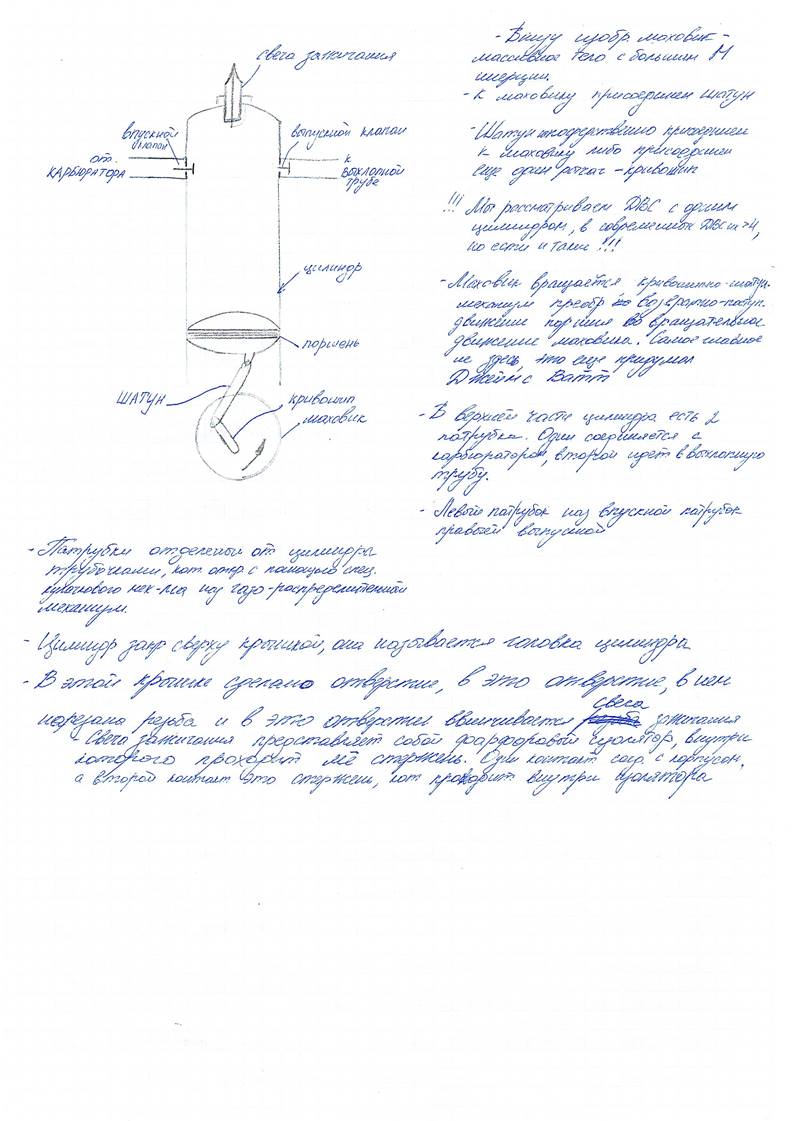 свеча зажигания
впускной
клапан
выпускной клапан
от
КАРБЮРАТОРА
к
ВЫХЛОПНОЙ
ТРУБЕ
цилиндр
поршень
ШАТУН
кривошип
маховик
- Внизу изобр. маховик -
массивное тело с большим М
инерции.
- К маховику присоединен шатун
- Шатун присоединен
к маховику либо присоединен
еще один рычаг - кривошип
!!! Мы рассматриваем ДВС с одним
цилиндром, в современных ДВС их >4,
но есть и такие !!!
- Маховик вращается кривошипно-шатун.
механизм преобр возвратно-поступ.
движение поршня во вращательное
движение маховика. Самое главное
не здесь, это еще придумал
Джеймс Ватт
- В верхней части цилиндра есть 2
патрубка. Один соединяется с
карбюратором, второй идет в выхлопную
трубу.
- Левый патрубок наз впускной патрубок
правый выпускной
- Патрубки отделены от цилиндра
трубочками, кот. откр. с помощью спец.
кулачкового мех-ма наз газо-распределительный
механизм.
- Цилиндр закр сверху крышкой, она называется головка цилиндра
- В этой крышке сделано отверстие, в это отверстие, в нем
нарезана резьба и в это отверстие ввинчивается свеча зажигания
- Свеча зажигания представляет собой фарфоровый изолятор, внутри
которого проходит стержень. Один контакт соед. с корпусом,
а второй контакт это стержень, кот проходит внутри изолятора